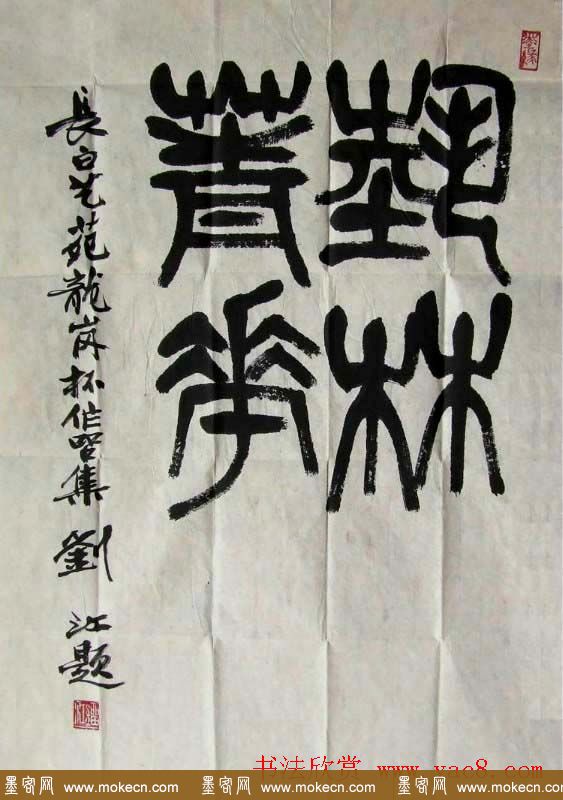 埶林
菁華
長白艺苑龍岗杯作品集 劉江題
书法欣赏 www.yac8.com
墨客网 www.mokecn.com 墨客网 www.mokecn.com 墨客网 www.mokecn.com